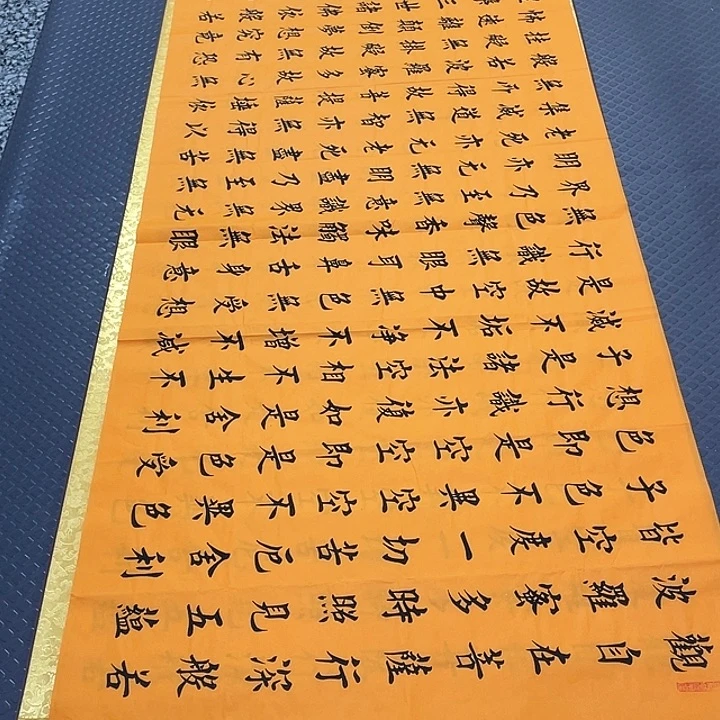 觀自在菩薩行深般若
波羅蜜多時照見五蘊
皆空度一切苦厄舍利
子色不異空空不異色
色即是空空即是色受
想行識亦復如是舍利
子是諸法空相不生不
滅不垢不净不增不減
是故空中無色無受想
行識無眼耳鼻舌身意
無色聲香味觸法無眼
界乃至無意識界無无
明亦无無明盡乃至無
老死亦无老死盡無苦
集滅道無智亦無得以
無所得故菩提薩埵依
般若波羅蜜多故心無
挂礙無掛礙故無有恐
怖遠離顛倒夢想究竟
三世諸佛依般若